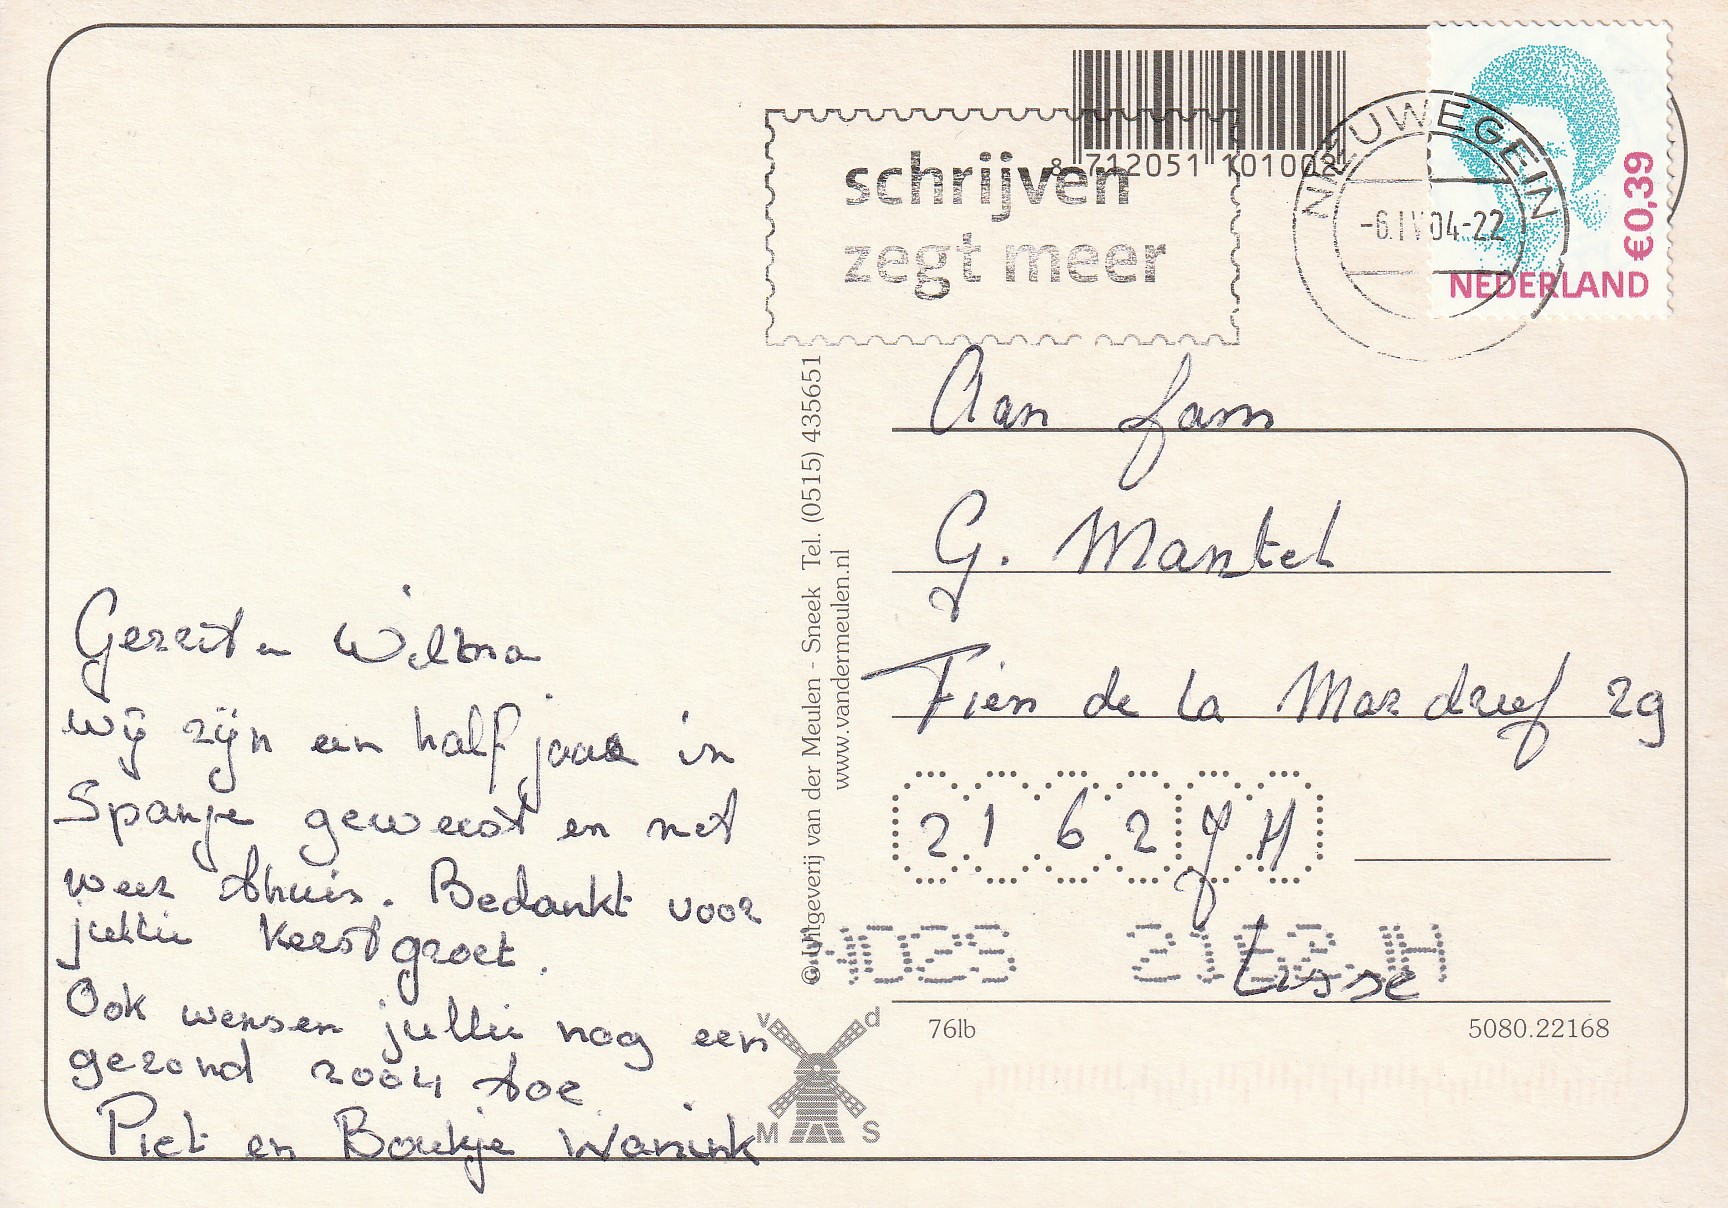 8 712051 101002
schrijven
zegt meer
NIEUWEGEIN
-6.IV.04-22
€0,39
NEDERLAND
Gerrit en Wilma
wij zijn een half jaar in
Spanje geweest en net
weer thuis. Bedankt voor
jullie kerstgroet.
Ook wensen jullie nog een
gezond 2004 toe
Piet en Boukje Wanink
© Uitgeverij van der Meulen - Sneek Tel. (0515) 435651
www.vandermeulen.nl
Aan fam
G. Mantel
Fien de la Mar dreef 29
2162 JH
Lisse
76lb
5080.22168
v d
M S